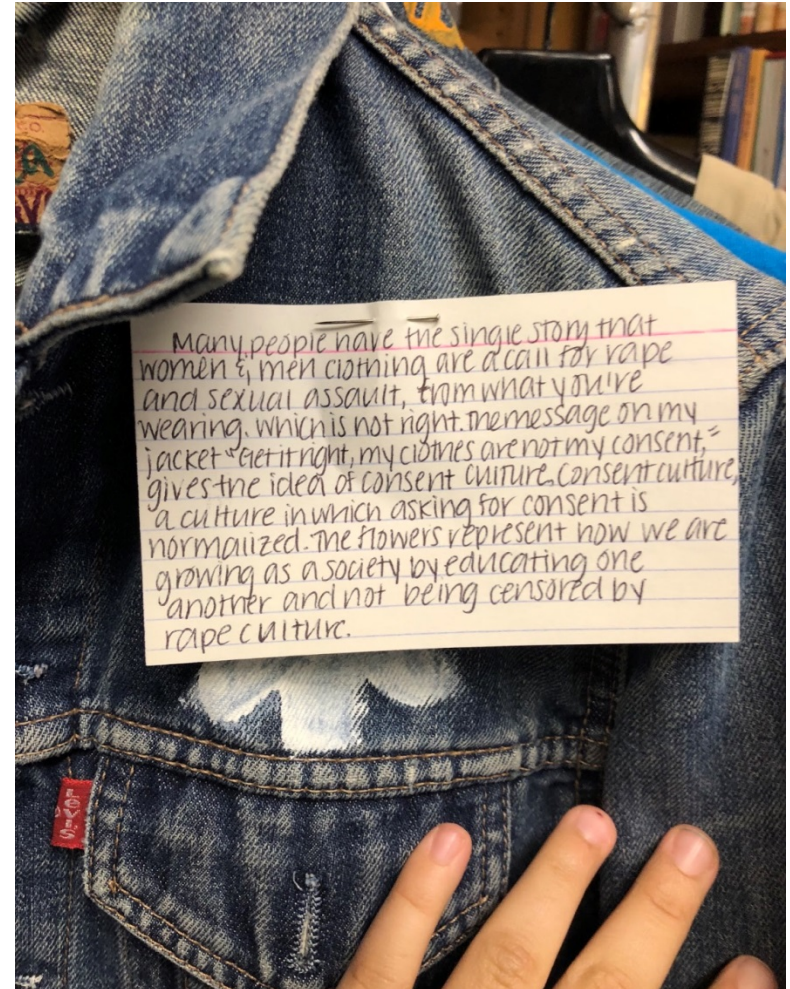 CO.
A
Many people have the single story that
women & men clothing are a call for rape
and sexual assault, from what you're
wearing. which is not right. The message on my
jacket "Get it right, my clothes are not my consent,"
gives the idea of consent culture. Consent culture,
a culture in which asking for consent is
normalized. The flowers represent how we are
growing as a society by educating one
another and not being censored by
rape culture.
LEVI'S